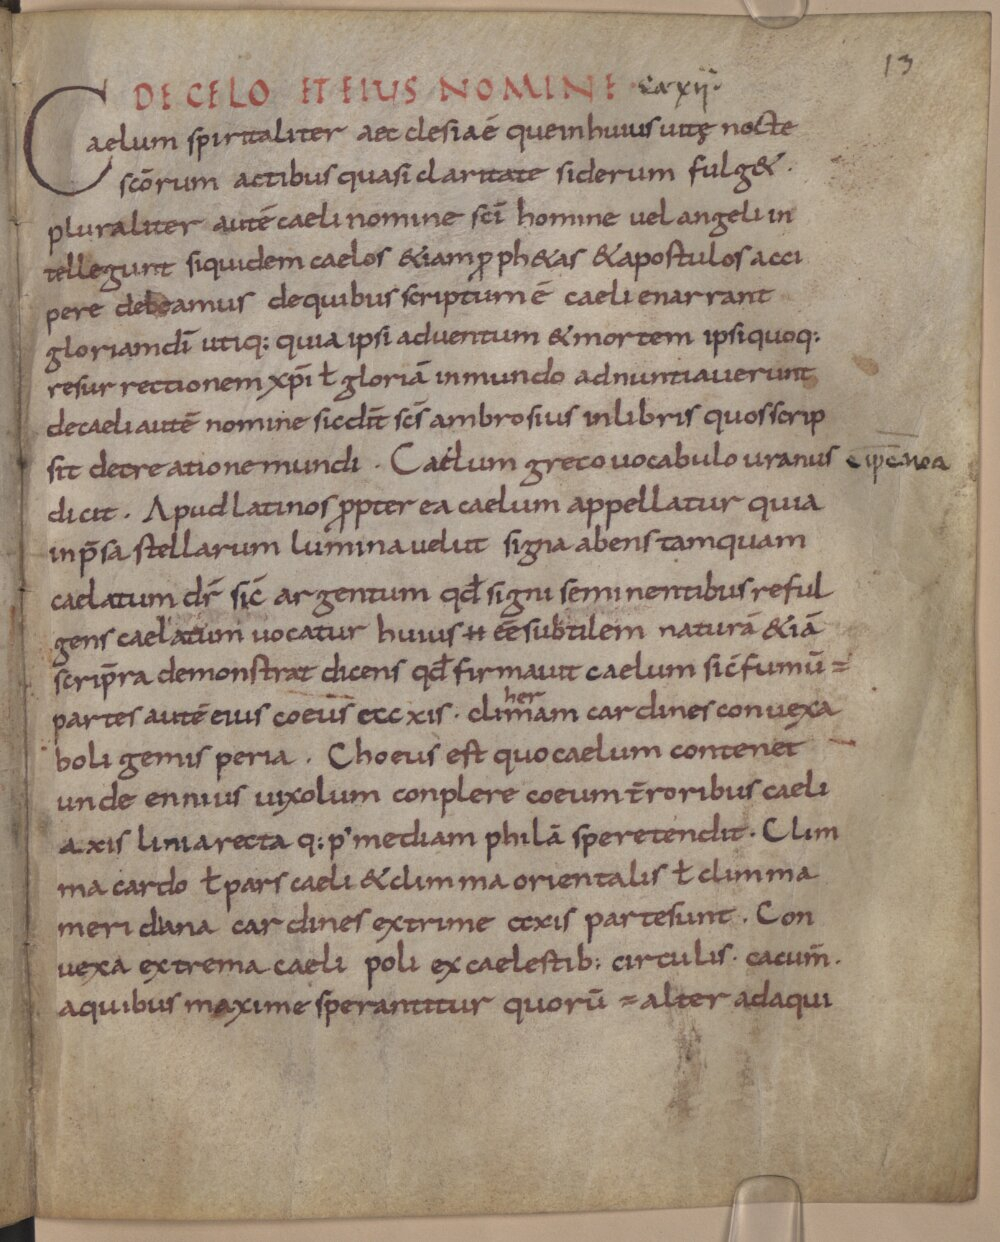 13
DE CELO ET EIUS NOMINE Caxii.
Caelum spiritaliter aecclesia ē que in huius uitę nocte
scōrum actibus quasi claritate siderum fulg&.
pluraliter autē caeli nomine sc̄i homine uel angeli in
tellegunt siquidem caelos &iam ꝓph&as & apostulos acci
pere debeamus de quibus scriptum ē caeli enarrant
gloriam dī utiq: quia ipsi aduentum & mortem ipsi quoq:
resurrectionem xp̄i ł gloriā in mundo adnuntiauerunt
de caeli autē nomine sic dīt sc̄s ambrosius in libris quos scrip
sit de creatione mundi. Caelum greco uocabulo uranus
dicit. Apud latinos ꝓpter ea caelum appellatur quia
inp̄sa stellarum lumina uelut signa abens tamquam
caelatum dr̄ sić argentum qd̄ signis eminentibus reful
gens caelatum uocatur huius ēē subtilem naturā &iā
scrip̄ra demonstrat dicens qd̄ firmauit caelum sić fumū
partes autē eius coeus axis. climam cardines conuexa
her
boli gemisperia. Choeus est quo caelum contenet
unde ennius uix solum conplere coeum t̄roribus caeli
axis linia recta q: p' mediam philā speretendit. Clim
ma cardo ł pars caeli & climma orientalis ł climma
meridiana cardines extrime axis partes unt. Con
uexa extrema caeli poli ex caelestib: circulis. cacum̄.
a quibus maxime sperantitur quorū alter ad aqui